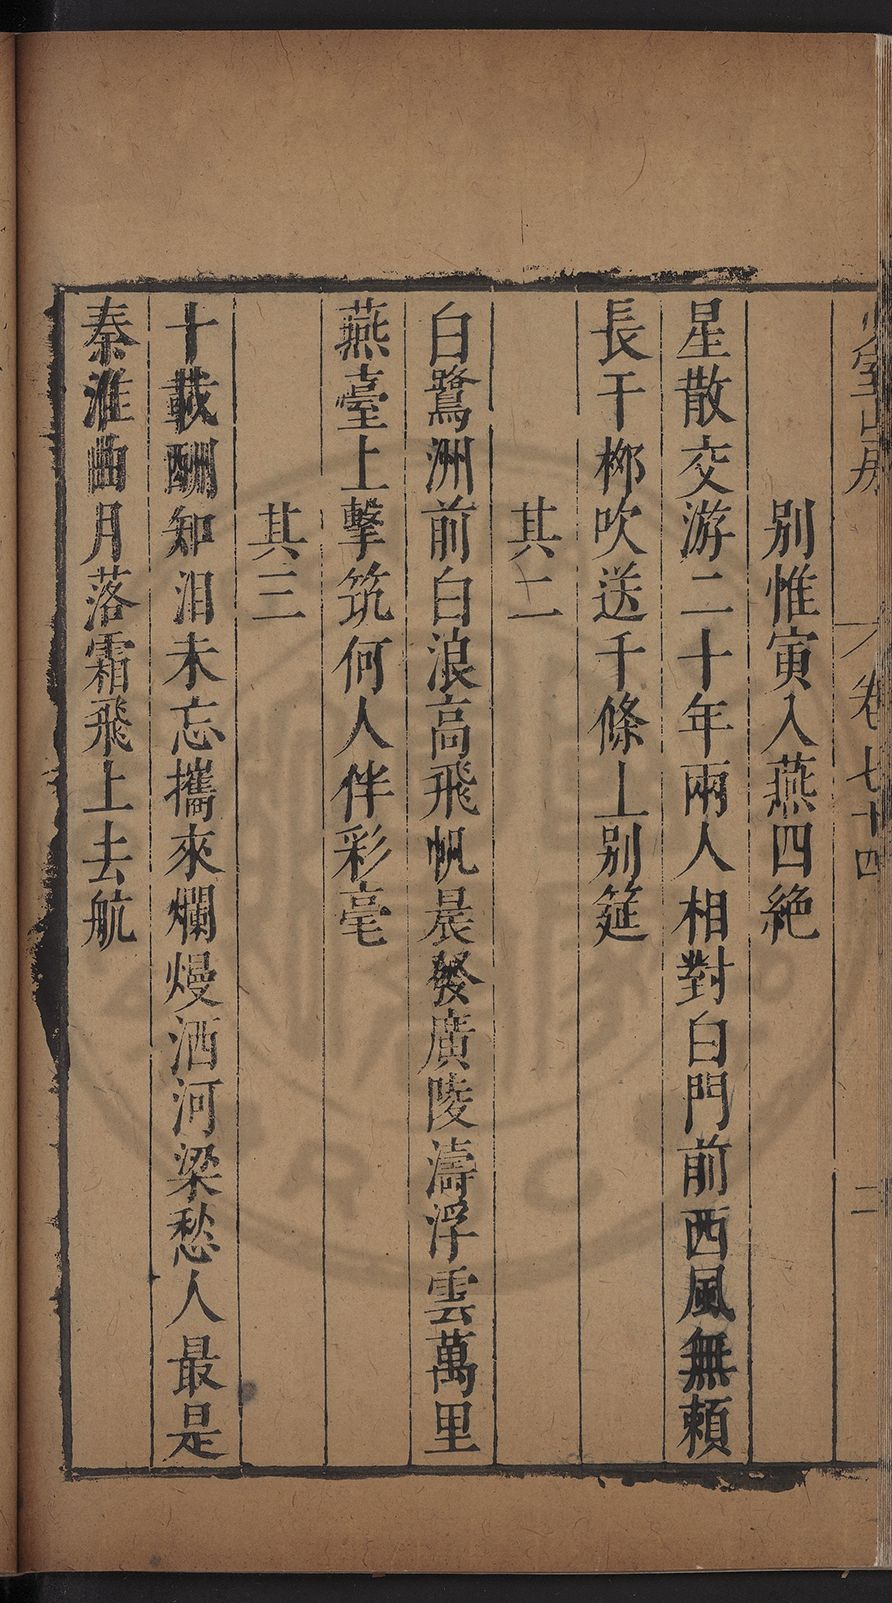 卷七十四
二
別惟寅入燕四絶
星散交游二十年兩人相對白門前西風無頼
長干柳吹送千條上别筵
其二
白鷺洲前白浪高飛帆晨發廣陵濤浮雲萬里
燕臺上擊筑何人伴彩毫
其三
十載酬知泪未忘攜來爛熳洒河梁愁人最是
秦淮曲月落霜飛上去航